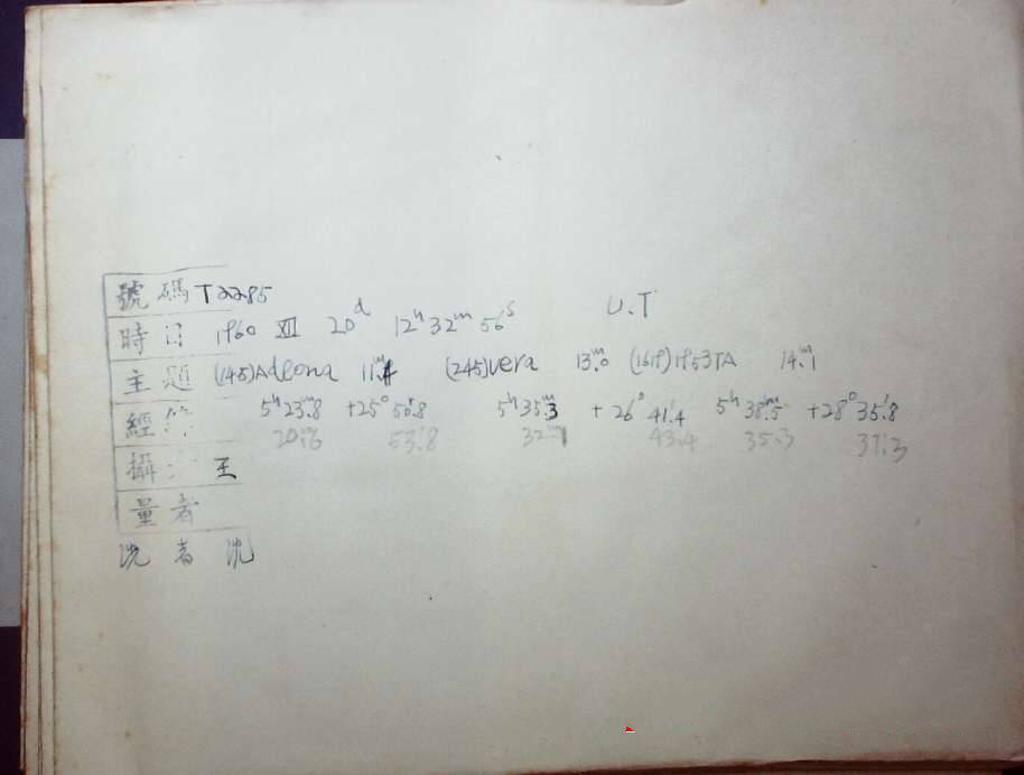 號碼 T2285
時 1960 XII 20d 12h 32m 56s U.T
主題 (145)Adeona 11m.4 (245)Vera 13m.0 (1619)1953TA 14m.1
經 5h23m.8 +25°56'.8 5h35m.3 +26°41'.4 5h38m.5 +28°35'.8
20m.6 53'.8 32m.1 43.4 35.3 37.3
攝 王
量者
洗者 沈